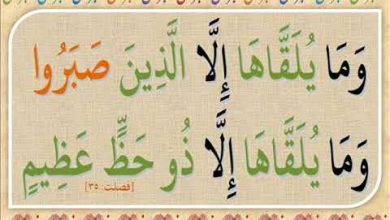 وَمَا يُلَقَّاهَا إِلَّا الَّذِينَ صَبَرُوا
وَمَا يُلَقَّاهَا إِلَّا ذُو حَظٍّ عَظِيمٍ
[فصلت: ٣٥]